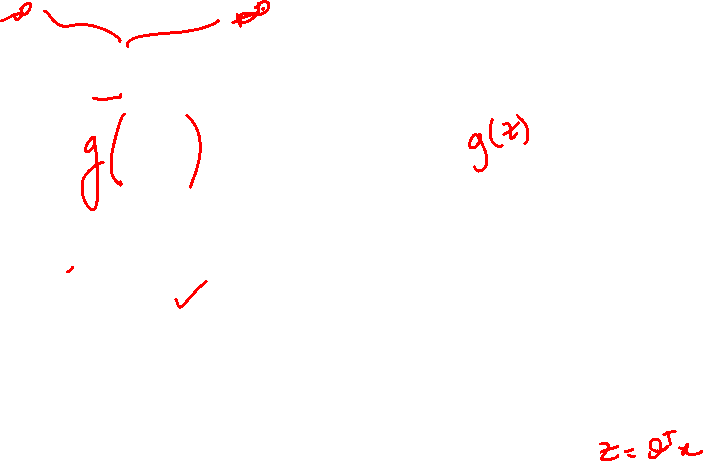 -∞ ∞
g( )
g(z)
z = θᵀx